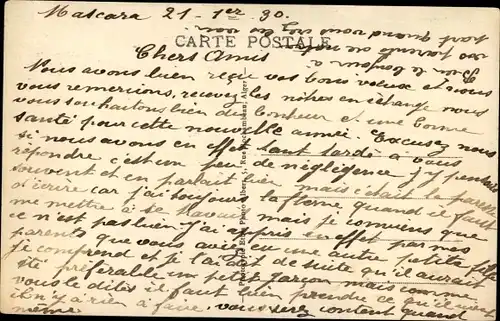 Mascara 21 - 1er 30.
CARTE POSTALE
Chers Amis
Nous avons bien reçu vos bons vœux et nous
vous remercions, recevez les nôtres en échange nous
vous souhaitons bien du bonheur et une bonne
santé pour cette nouvelle année. Excusez nous
si nous avons en effet tant tardé a vous
répondre c'est un peu de négligence j'y pensais
souvent et en parlait bien mais c'était la paresse
d'écrire car j'ai toujours la flême quand il faut
me mettre à travail mais je conviens que
ce n'est pas bien j'ai appris en effet par mes
parents que vous aviez eu une autre petite fille
je comprend et je l'ai dit de suite qu'il aurait
été préférable un petit garçon mais comme
vous le dites il faut bien prendre ce qu'il vient
il n'y a rien à faire, vous serez content quand
même
Photo Albert, 5, Rue Alger